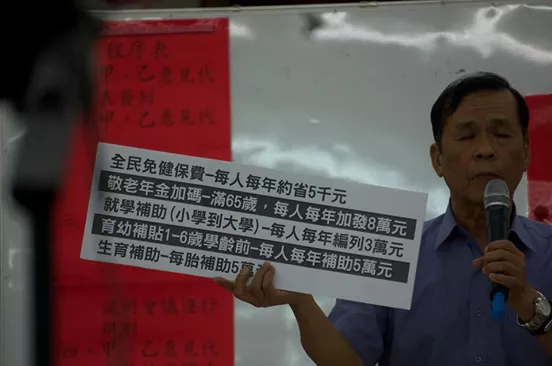 程序表
甲、乙意見代
表簽到
甲、乙意見代
全民免健保費-每人每年約省5千元
敬老年金加碼-滿65歲，每人每年加發8萬元
就學補助(小學到大學)-每人每年編列3萬元
育幼補貼1-6歲學齡前-每人每年補助5萬元
生育補助-每胎補助5萬
說明會議進行
規則
四、甲、乙意見代